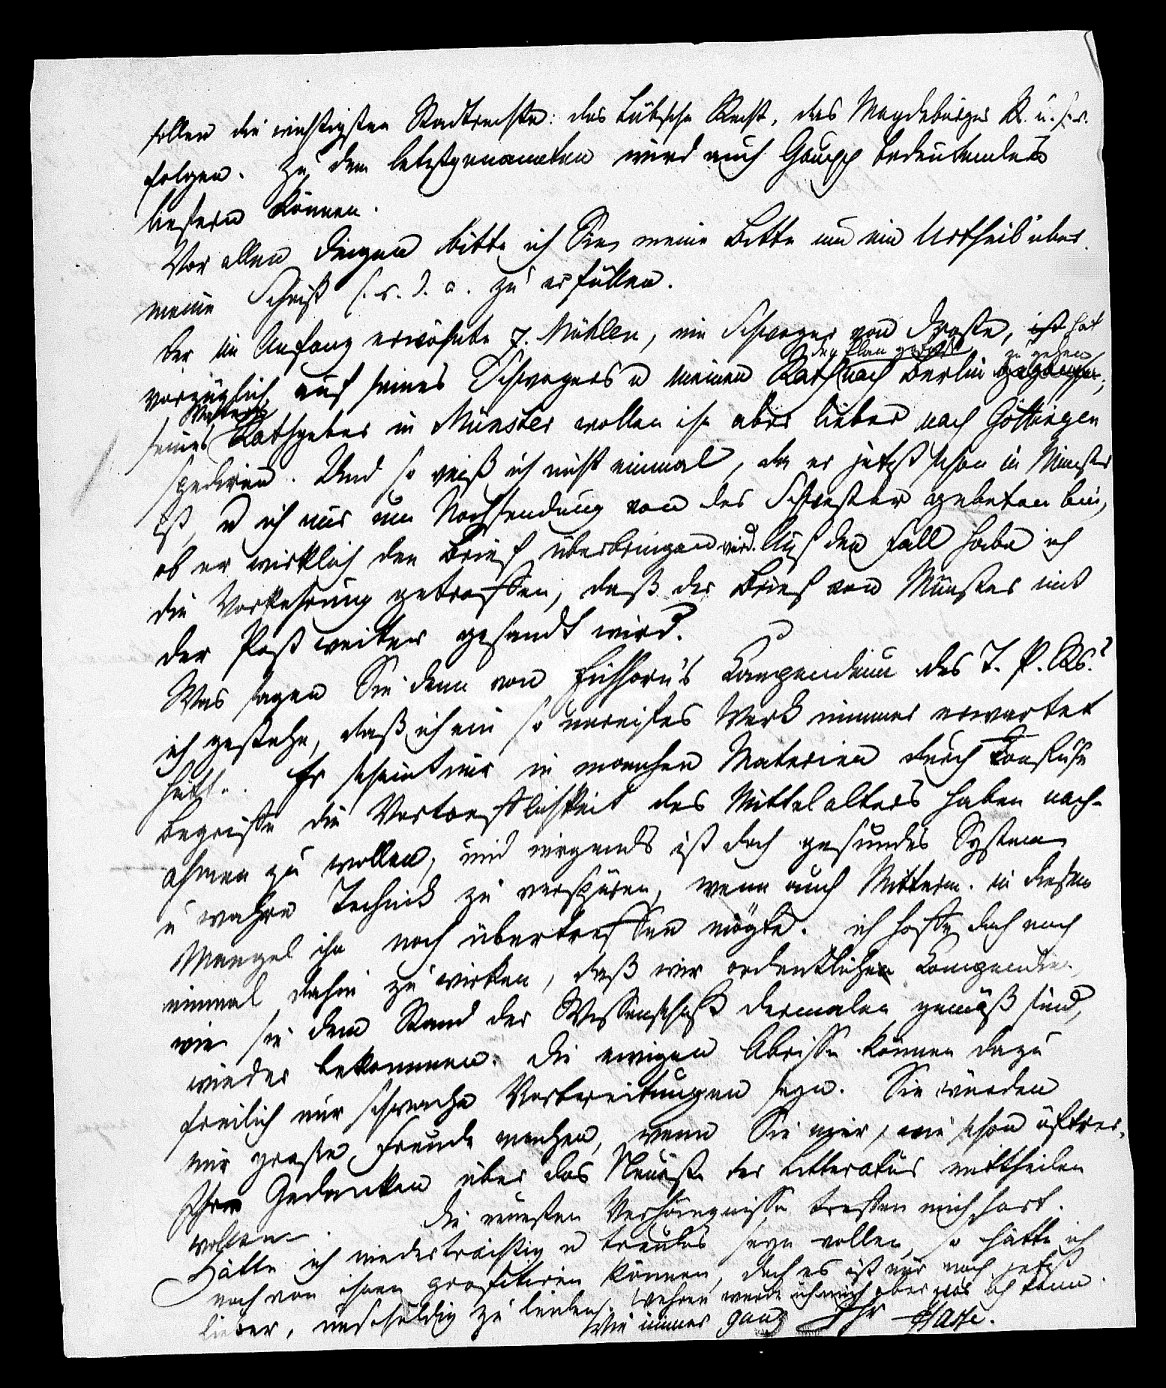 sollen die wichtigsten Stadtrechte: das Lübsche Recht, das Magdeburger R. u. s. w.
folgen. Zu dem letztgenannten wird auch Gaupp bedeutendes
liefern können.
Vor allen Dingen bitte ich Sie, meine Bitte um ein Urtheil über
meine Schrift s. r. d. a. zu erfüllen.
Der im Anfang erwähnte z. Mühlen, ein Schwager von Droste, hat
vorzüglich auf seines Schwagers u meinen Rath den Plan gefaßt nach Berlin zu gehen;
seines Vaters Rathgeber in Münster wollen ihn aber lieber nach Göttingen
spediren. Und so weiß ich nicht einmal, da er jetzt schon in Münster
ist, u ich nur um Nachsendung von der Schwester gebeten bin,
ob er wirklich den Brief überbringen wird. Auf den Fall habe ich
die Vorkehrung getroffen, daß der Brief von Münster mit
der Post weiter gesandt wird.
Was sagen Sie denn von Eichhorn's Compendium des T. P. Rs.?
ich gestehe, daß ich ein so unreifes Werk nimmer erwartet
hätte. Er scheint mir in manchen Materien durch
Begriffe die Vortrefflichkeit des Mittelalters haben nach-
ahmen zu wollen, und nirgends ist doch gesundes System
u wahre Technik zu verspüren, wenn auch Mitterm. in diesem
Mangel ihn noch übertreffen mögte. ich hoffe doch noch
einmal dahin zu wirken, daß wir ordentliche Compendien,
wie sie dem Stand der Wissenschaft dermalen gemäß sind,
wieder bekommen. Die ewigen Abrisse können dazu
freilich nur schwache Vorbereitungen seyn. Sie würden
mir große Freude machen, wenn Sie mir, wie schon öfters,
Ihre Gedanken über das Neueste der Litteratur mittheilen
wollten. Die neuesten Verhängnisse treffen mich hart.
Hätte ich niederträchtig u treulos seyn wollen, so hätte ich
noch von ihnen profitiren können, doch es ist mir noch jetzt
lieber, unschuldig zu leiden. wehren werde ich mich aber was ich kann.
Wie immer ganz Ihr Hasse.